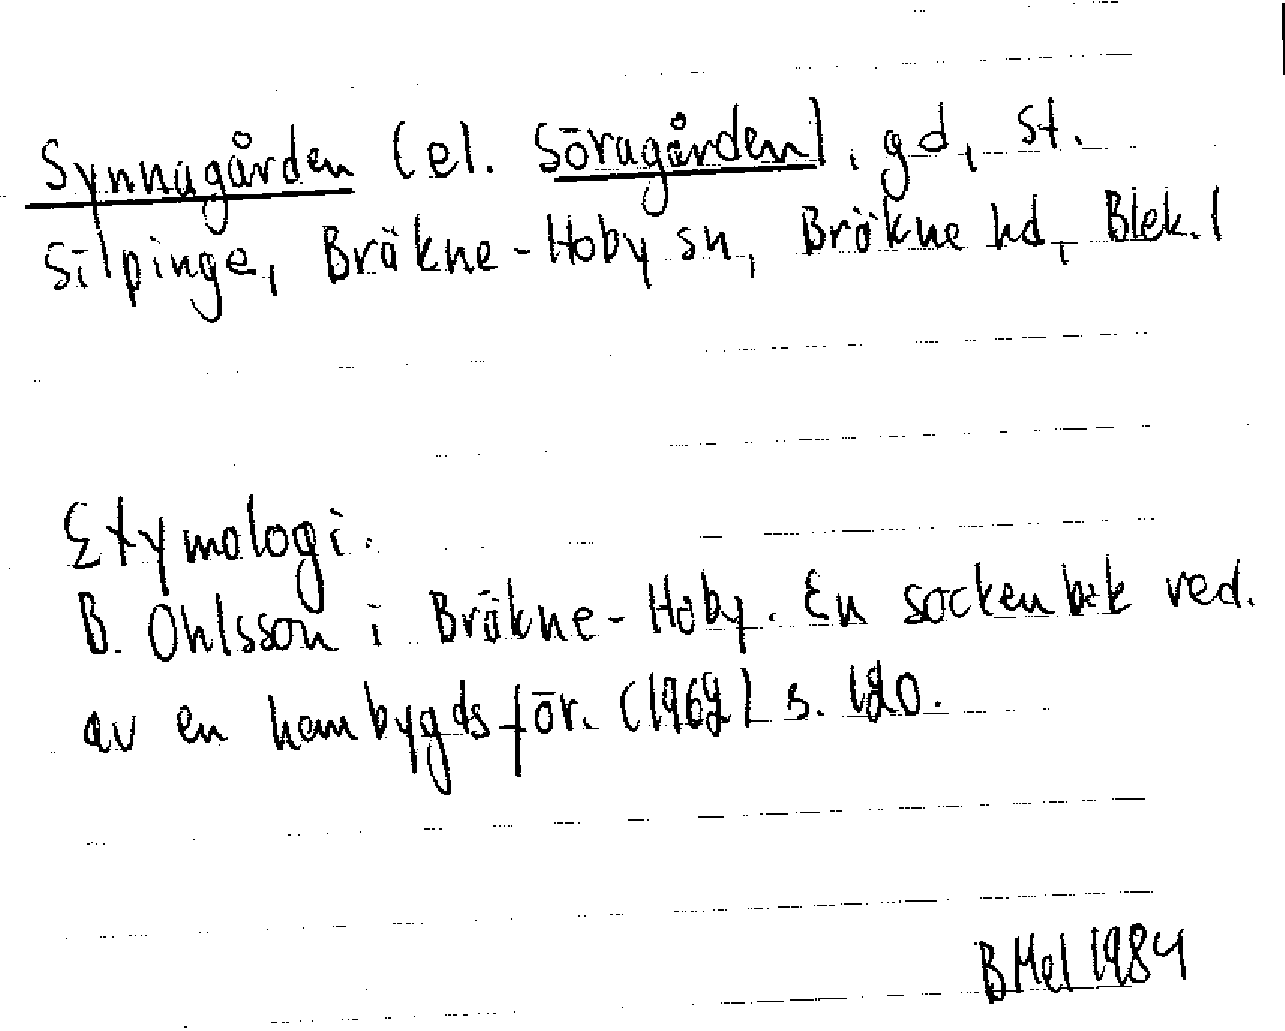 Synnagården (el. Söragården), gd, St.
Silpinge, Bräkne-Hoby sn, Bräkne hd, Blek. l
Etymologi.
B. Ohlsson i Bräkne-Hoby. En sockenbok red.
av en hembygdsför. (1962) s. 120.
BMel 1984